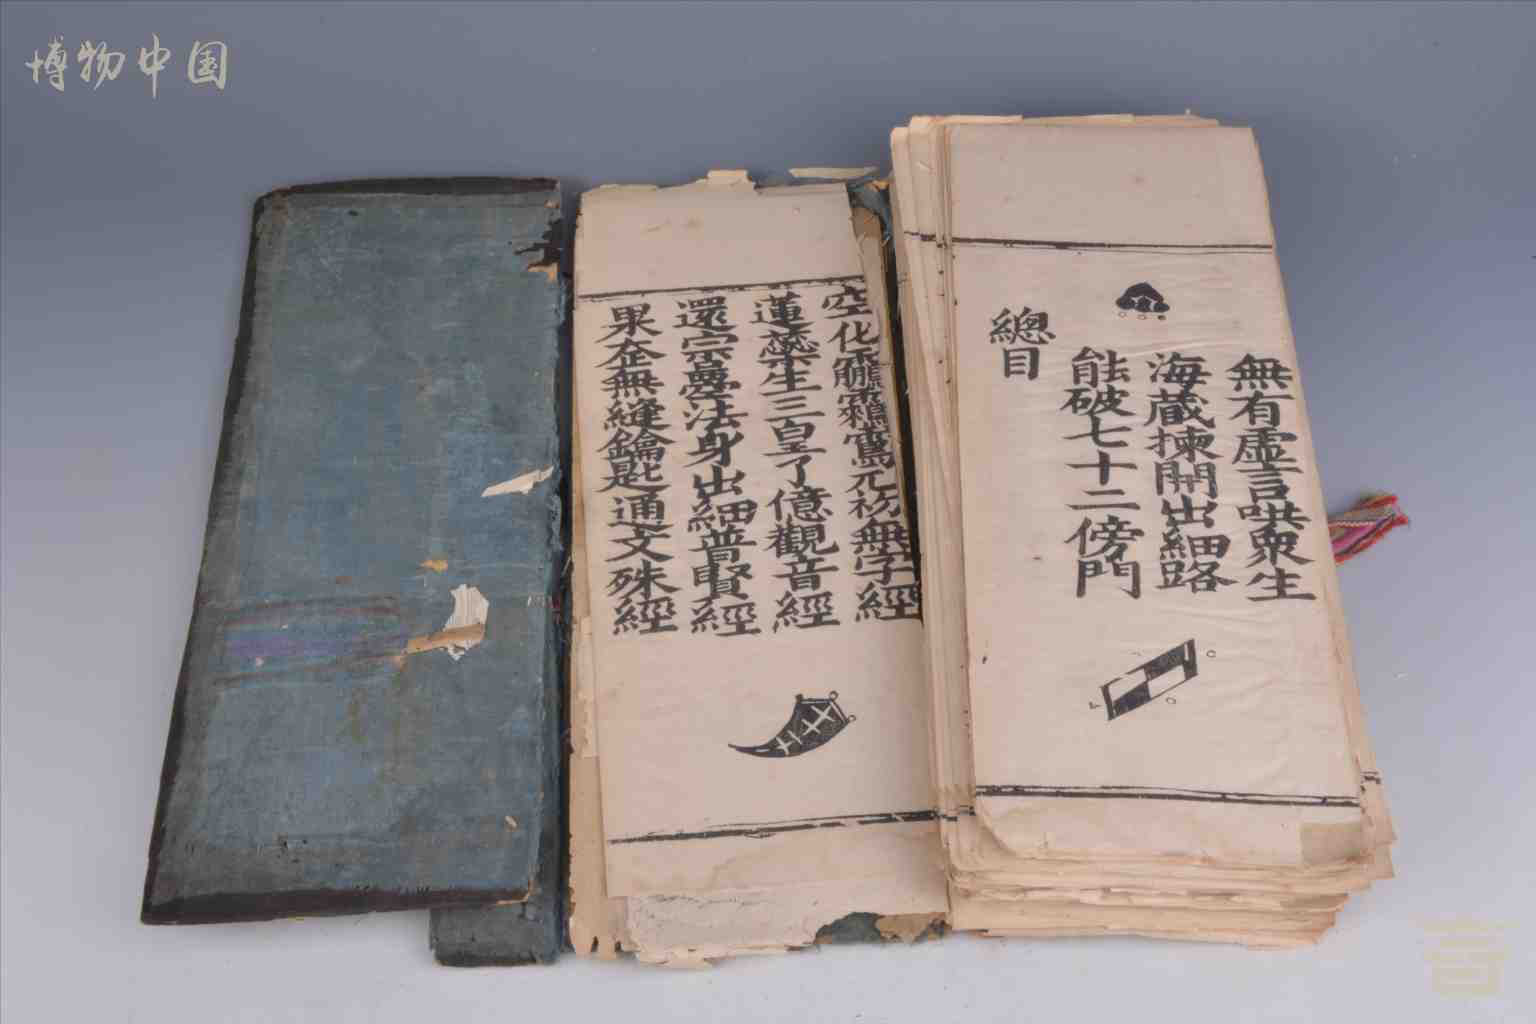 博物中国
無有虛言哄衆生
海藏揀開出細路
能破七十二傍門
總目
空化元初無字經
蓮蘂生三皇了億觀音經
還宗法身出細普賢經
果企無縫鑰匙通文殊經